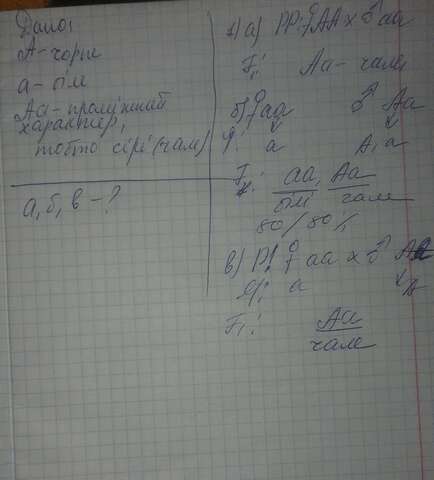 Дано:
А - чорні
а - білі
Аа - проміжний
характер,
тобто сірі (чалі)
а, б, в - ?
1) а) РР: ♀ АА x ♂ аа
F₁: Аа - чалі
б) ♀ аа ♂ Аа
g: а А, а
F₁: аа, Аа
білі чалі
в) Р: ♀ аа x ♂ АА
g: а А
F₁: Аа
чалі